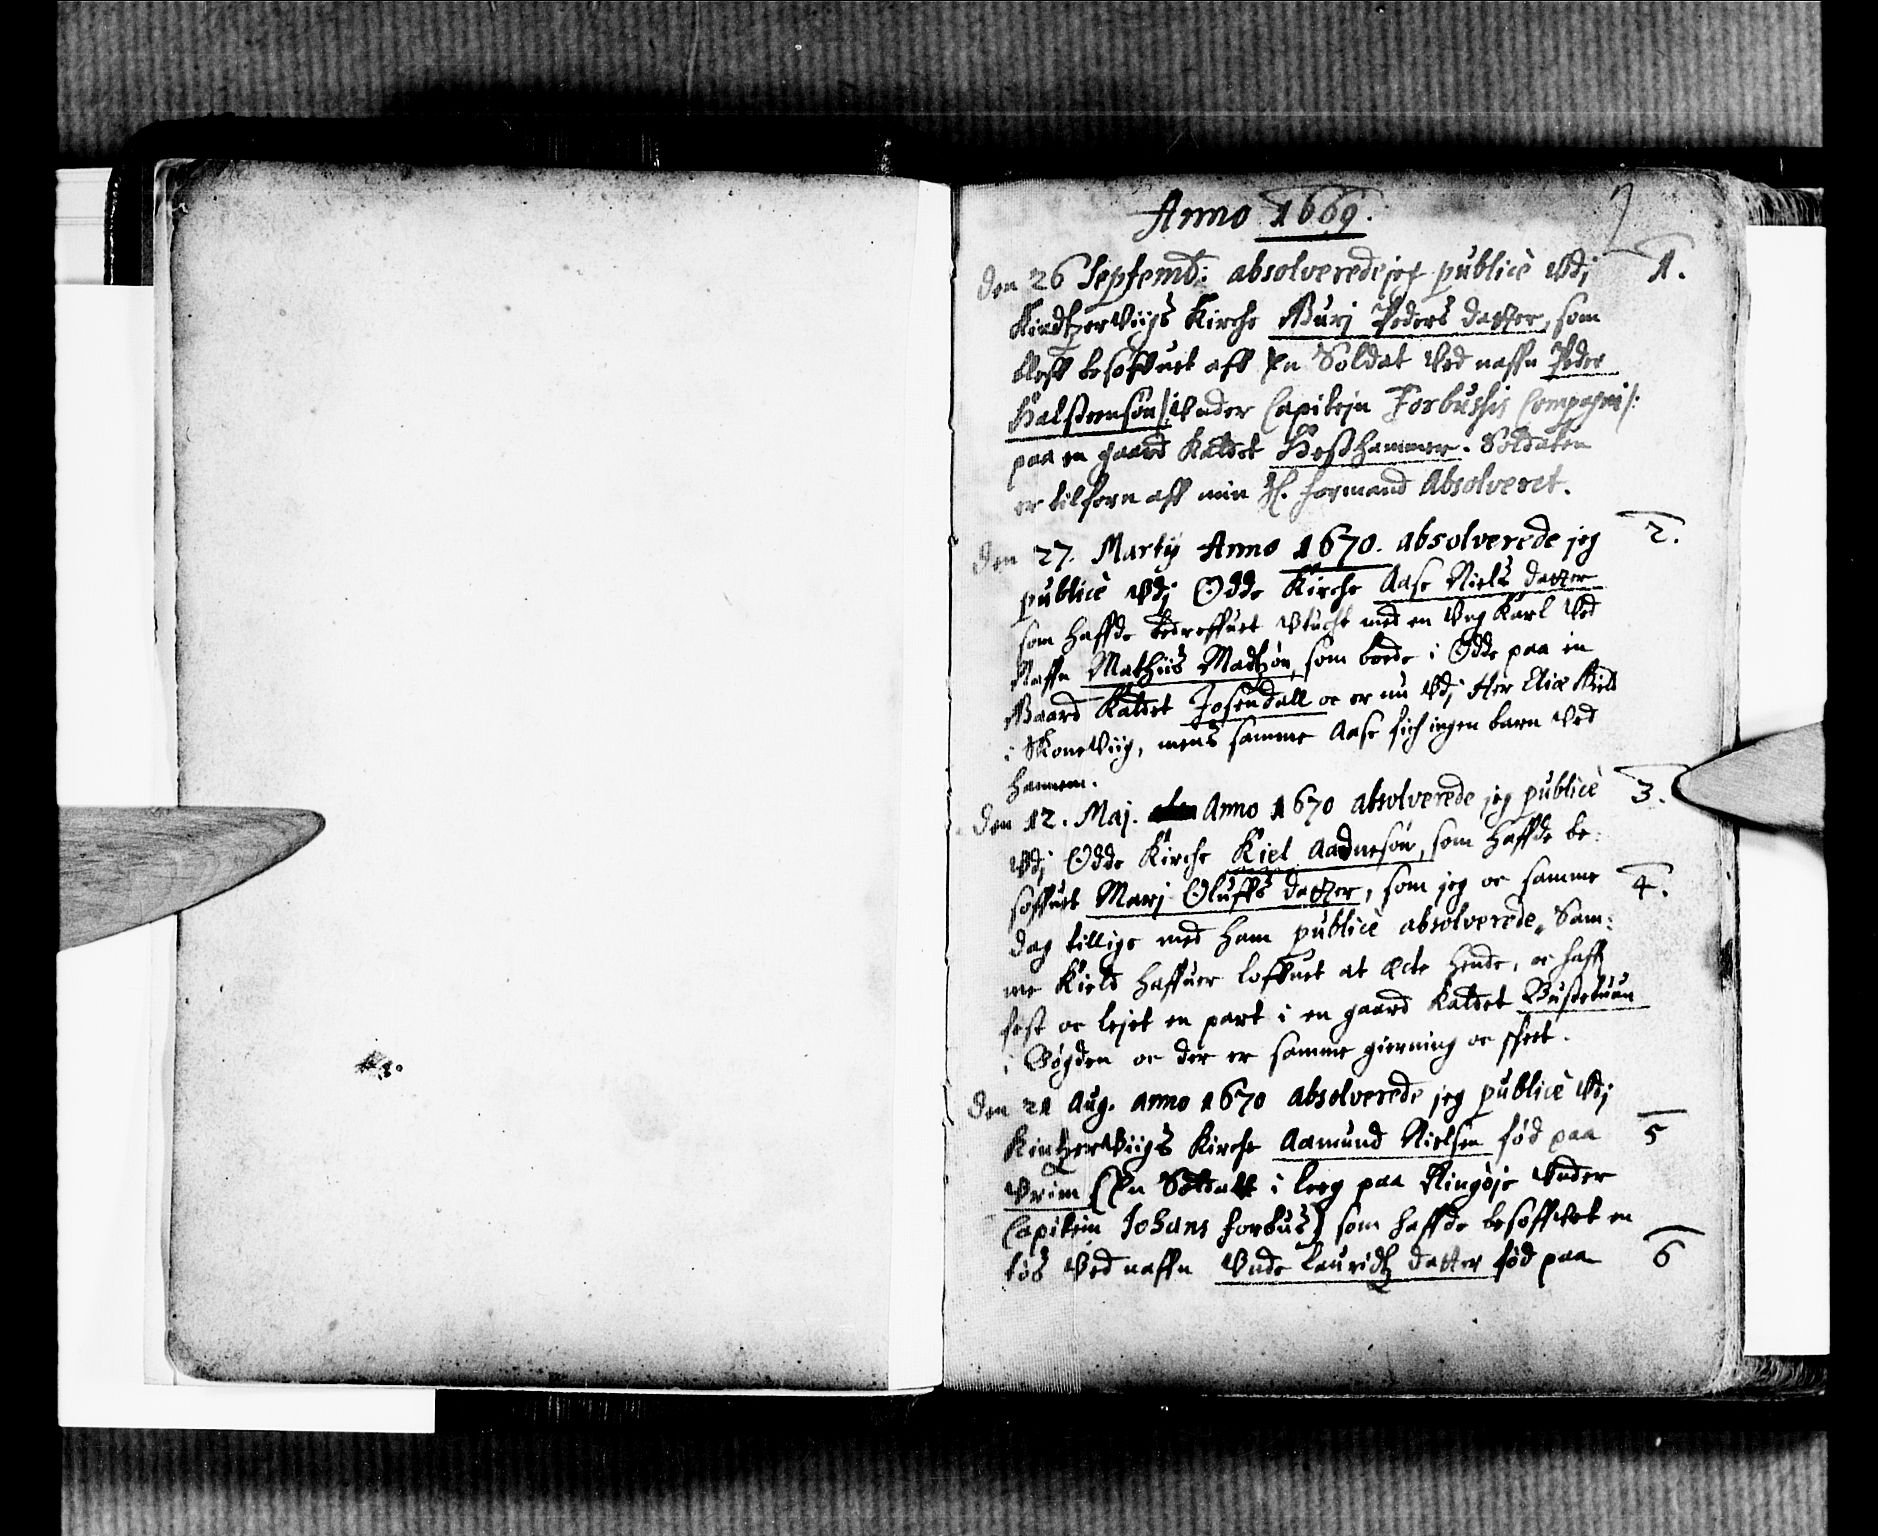 Anno 1669.
2
den 26 Septemb: absolverede jeg publicè Udj 1.
Kindtzerviigs Kirche Gurj Peders datter, som
bleff besoffuet aff En Soldat Ved naffn Peder
Halsteensøn /: Under Capitejn Forbusses Compagni :/
paa en gaard Kaldet Hesthammer. Soldaten
er tilforn aff min Sl. formand Absolveret.
den 27. Martij Anno 1670. absolverede jeg 2.
publicè Udj Odde Kirche Aase Niels datter
som haffde bedreffuet Utucht med en Ung Karl Ved
Naffn Mathiis Madtzøn, som boede i Odde paa en
Gaard Kaldet Josendall oc er nu Udj Her Eliæ Kield
i Skoneviig, mens samme Aase fich ingen barn Ved
hannem.
den 12. Maj. Anno 1670 absolverede jeg publicè 3.
Udj Odde Kirche Kiel Aadnesøn, som haffde be:
soffuet Marj Oluffs datter, som jeg oc samme 4.
dag tillige med ham publicè absolverede, Sam:
me Kield haffuer loffuet at Ecte hende, oc haff
fest oc lejet en part i en gaard Kaldet Bustetuun
i Bøgden oc der er samme gierning oc skeet.
den 21 Aug. anno 1670 absolverede jeg publicè Udj
Kintzerviigs Kirche Aamund Nielsen fød paa 5
Vriim (En Soldatt i leeg paa Ringøje Under
Capitejn Johans forbus) som haffde besoffuet en
tøs Ved naffn Unde Lauridtz datter fød paa 6